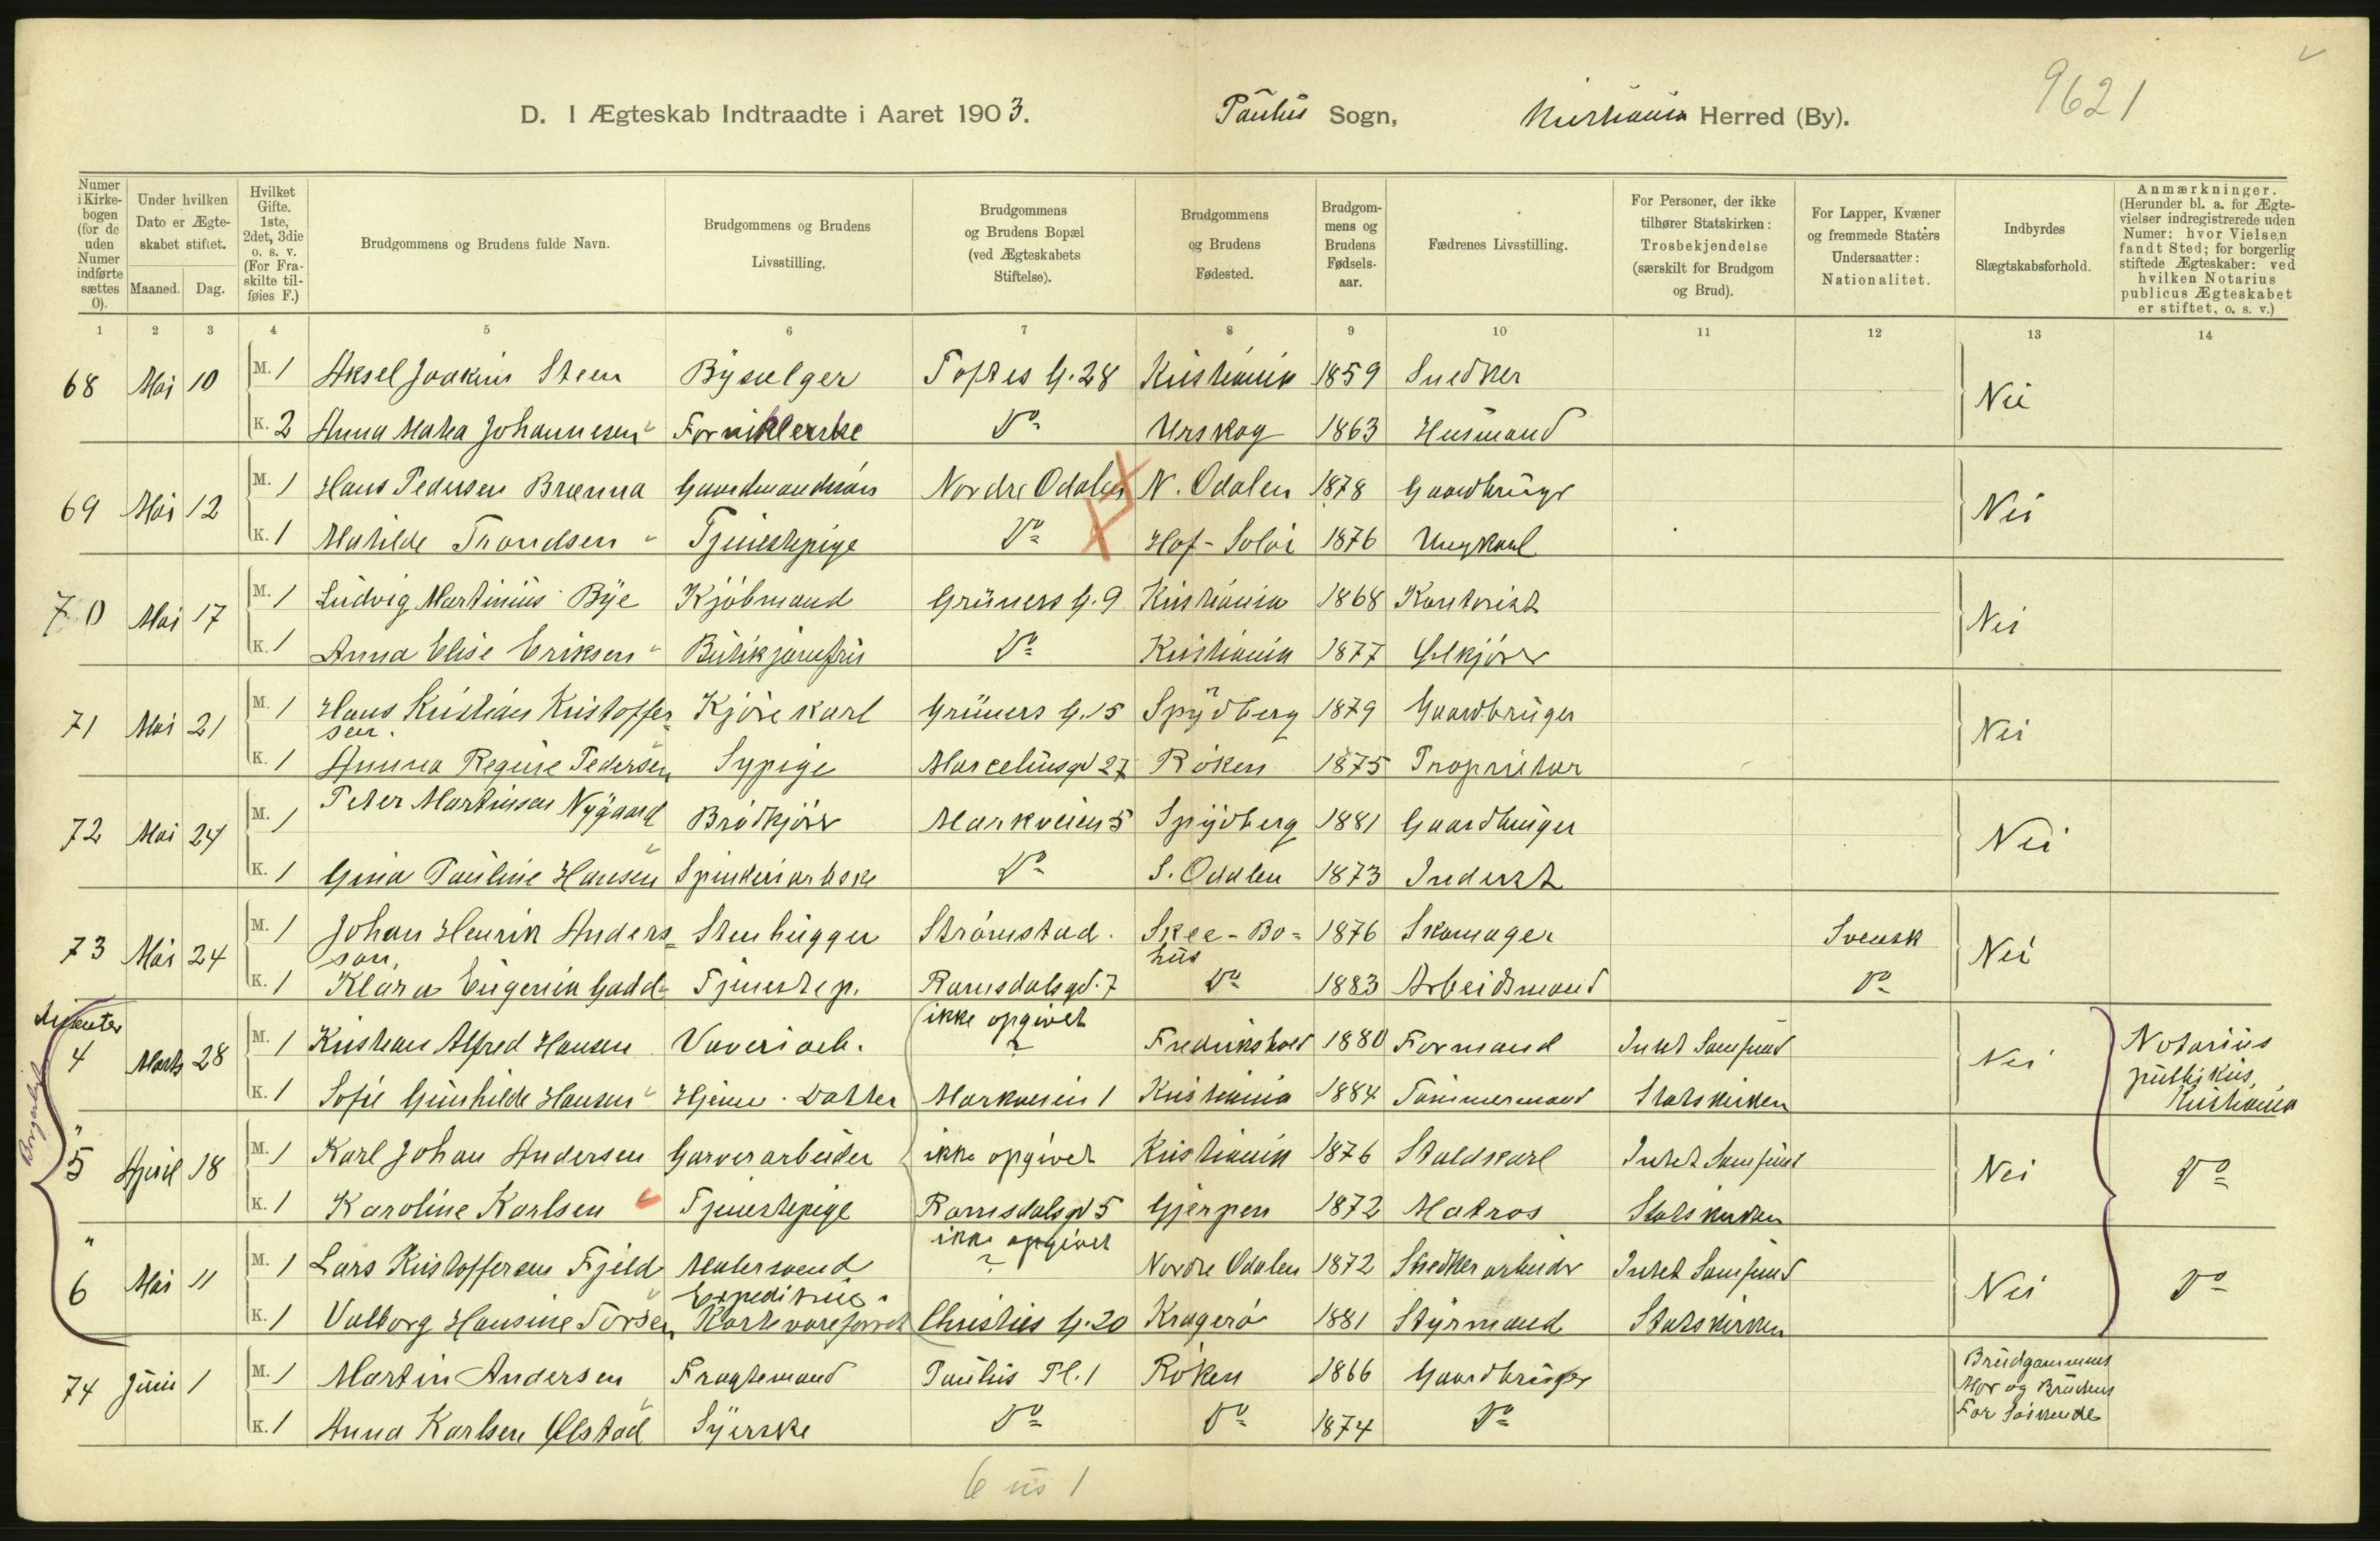 9621
D. I Ægteskab Indtraadte i Aaret 1903. Paulus Sogn, Kristiania Herred (By).
Numer i Kirkebogen (for de uden Numer indførte sættes 0).
Under hvilken Dato er Ægteskabet stiftet.
Maaned. Dag.
Hvilket Gifte. 1ste, 2det, 3die o. s. v. (For Fraskilte tilføies F.)
Brudgommens og Brudens fulde Navn.
Brudgommens og Brudens Livsstilling.
Brudgommens og Brudens Bopæl (ved Ægteskabets Stiftelse).
Brudgommens og Brudens Fødested.
Brudgommens og Brudens Fødselsaar.
Fædrenes Livsstilling.
For Personer, der ikke tilhører Statskirken: Trosbekjendelse (særskilt for Brudgom og Brud).
For Lapper, Kvæner og fremmede Staters Undersaatter: Nationalitet.
Indbyrdes Slægtskabsforhold.
Anmærkninger. (Herunder bl. a. for Ægtevielser indregistrerede uden Numer: hvor Vielsen fandt Sted; for borgerlig stiftede Ægteskaber: ved hvilken Notarius publicus Ægteskabet er stiftet, o. s. v.)
1 2 3 4 5 6 7 8 9 10 11 12 13 14
68 Mai 10 M. 1 Aksel Joakim Steen Bysælger Toftes G. 28 Kristiania 1859 Snedker Nei
K. 2 Anna Maria Johannesen Forniklerske Do Urskog 1863 Husmand
69 Mai 12 M. 1 Hans Pedersen Brænna Gaardmandssøn Nordre Odalen N. Odalen 1878 Gaardbruger Nei
K. 1 Mathilde Trondsen Tjenestepige Do Hof-Solør 1876 Ungkarl
70 Mai 17 M. 1 Ludvig Martinius Bye Kjøbmand Grüners G. 9 Kristiania 1868 Kontorist Nei
K. 1 Anna Elise Eriksen Butikjomfru Do Kristiania 1877 Ølkjører
71 Mai 21 M. 1 Hans Kristian Kristoffersen Kjørekarl Grüners G. 15 Spydberg 1879 Gaardbruger Nei
K. 1 Anna Regine Pedersen Sypige Marceliusgd 27 Røken 1875 Proprietær
72 Mai 24 M. 1 Peter Martinsen Nygaard Brødkjører Markveien 5 Spydberg 1881 Gaardbruger Nei
K. 1 Gina Pauline Hansen Spinderiarbske Do S. Odalen 1873 Inderst
73 Mai 24 M. 1 Johan Henrik Andersson, Stenhugger Strømstad. Skee-Bohus 1876 Skomager Svensk Nei
K. 1 Klara Eugenia Gadd Tjenestep. Ramsdalsgd. 7 Do 1883 Arbeidsmand Do
Borgerligt
4 Marts 28 M. 1 Kristian Alfred Hansen Væveriarb. ikke opgivet ? Frederikshald 1880 Formand Intet Samfund Nei Notarius publikus, Kristiania
K. 1 Sofie Gunhilde Hansen Hjemv. Datter Markveien 1 Kristiania 1884 Tømmermand Statskirken
" 5 April 18 M. 1 Karl Johan Andersen Garverarbeider ikke opgivet Kristiania 1876 Staldkarl Intet Samfund Nei Do
K. 1 Karoline Karlsen Tjenestepige Ramsdalsgd 5 Gjerpen 1872 Matros Statskirken
" 6 Mai 11 M. 1 Lars Kristoffersen Fjeld Malersvend ikke opgivet ? Nordre Odalen 1872 Snedkerarbeider Intet Samfund Nei Do
K. 1 Valborg Hansine Torsen Expeditrice Christies G. 20 Kragerø 1881 Styrmand Statskirken
74 Juni 1 M. 1 Martin Andersen Fragtemand Paulus Pl. 1 Røken 1866 Gaardbruger Brudgommens Mor og Brudens Far Søskende
K. 1 Anna Karlsen Ølstad Syerske Do Do 1874 Do